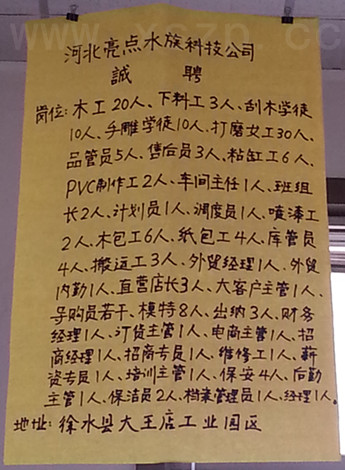 河北亮点水族科技公司
誠 聘
岗位:木工20人、下料工3人、刮木学徒
10人、手雕学徒10人、打磨女工30人、
品管员5人、售后员3人、粘缸工6人、
PVC制作工2人、车间主任1人、班组
长2人、计划员1人、调度员1人、喷漆工
2人、木包工6人、纸包工4人、库管员
4人、搬运工3人、外贸经理1人、外贸
内勤1人、直营店长3人、大客户主管1人、
导购员若干、模特8人、出纳3人、财务
经理1人、订货主管1人、电商主管1人、招
商经理1人、招商专员1人、维修工1人、薪
资专员1人、培训主管1人、保安4人、后勤
主管1人、保洁员2人、档案管理员1人、经理1人。
地址:徐水县大王店工业园区